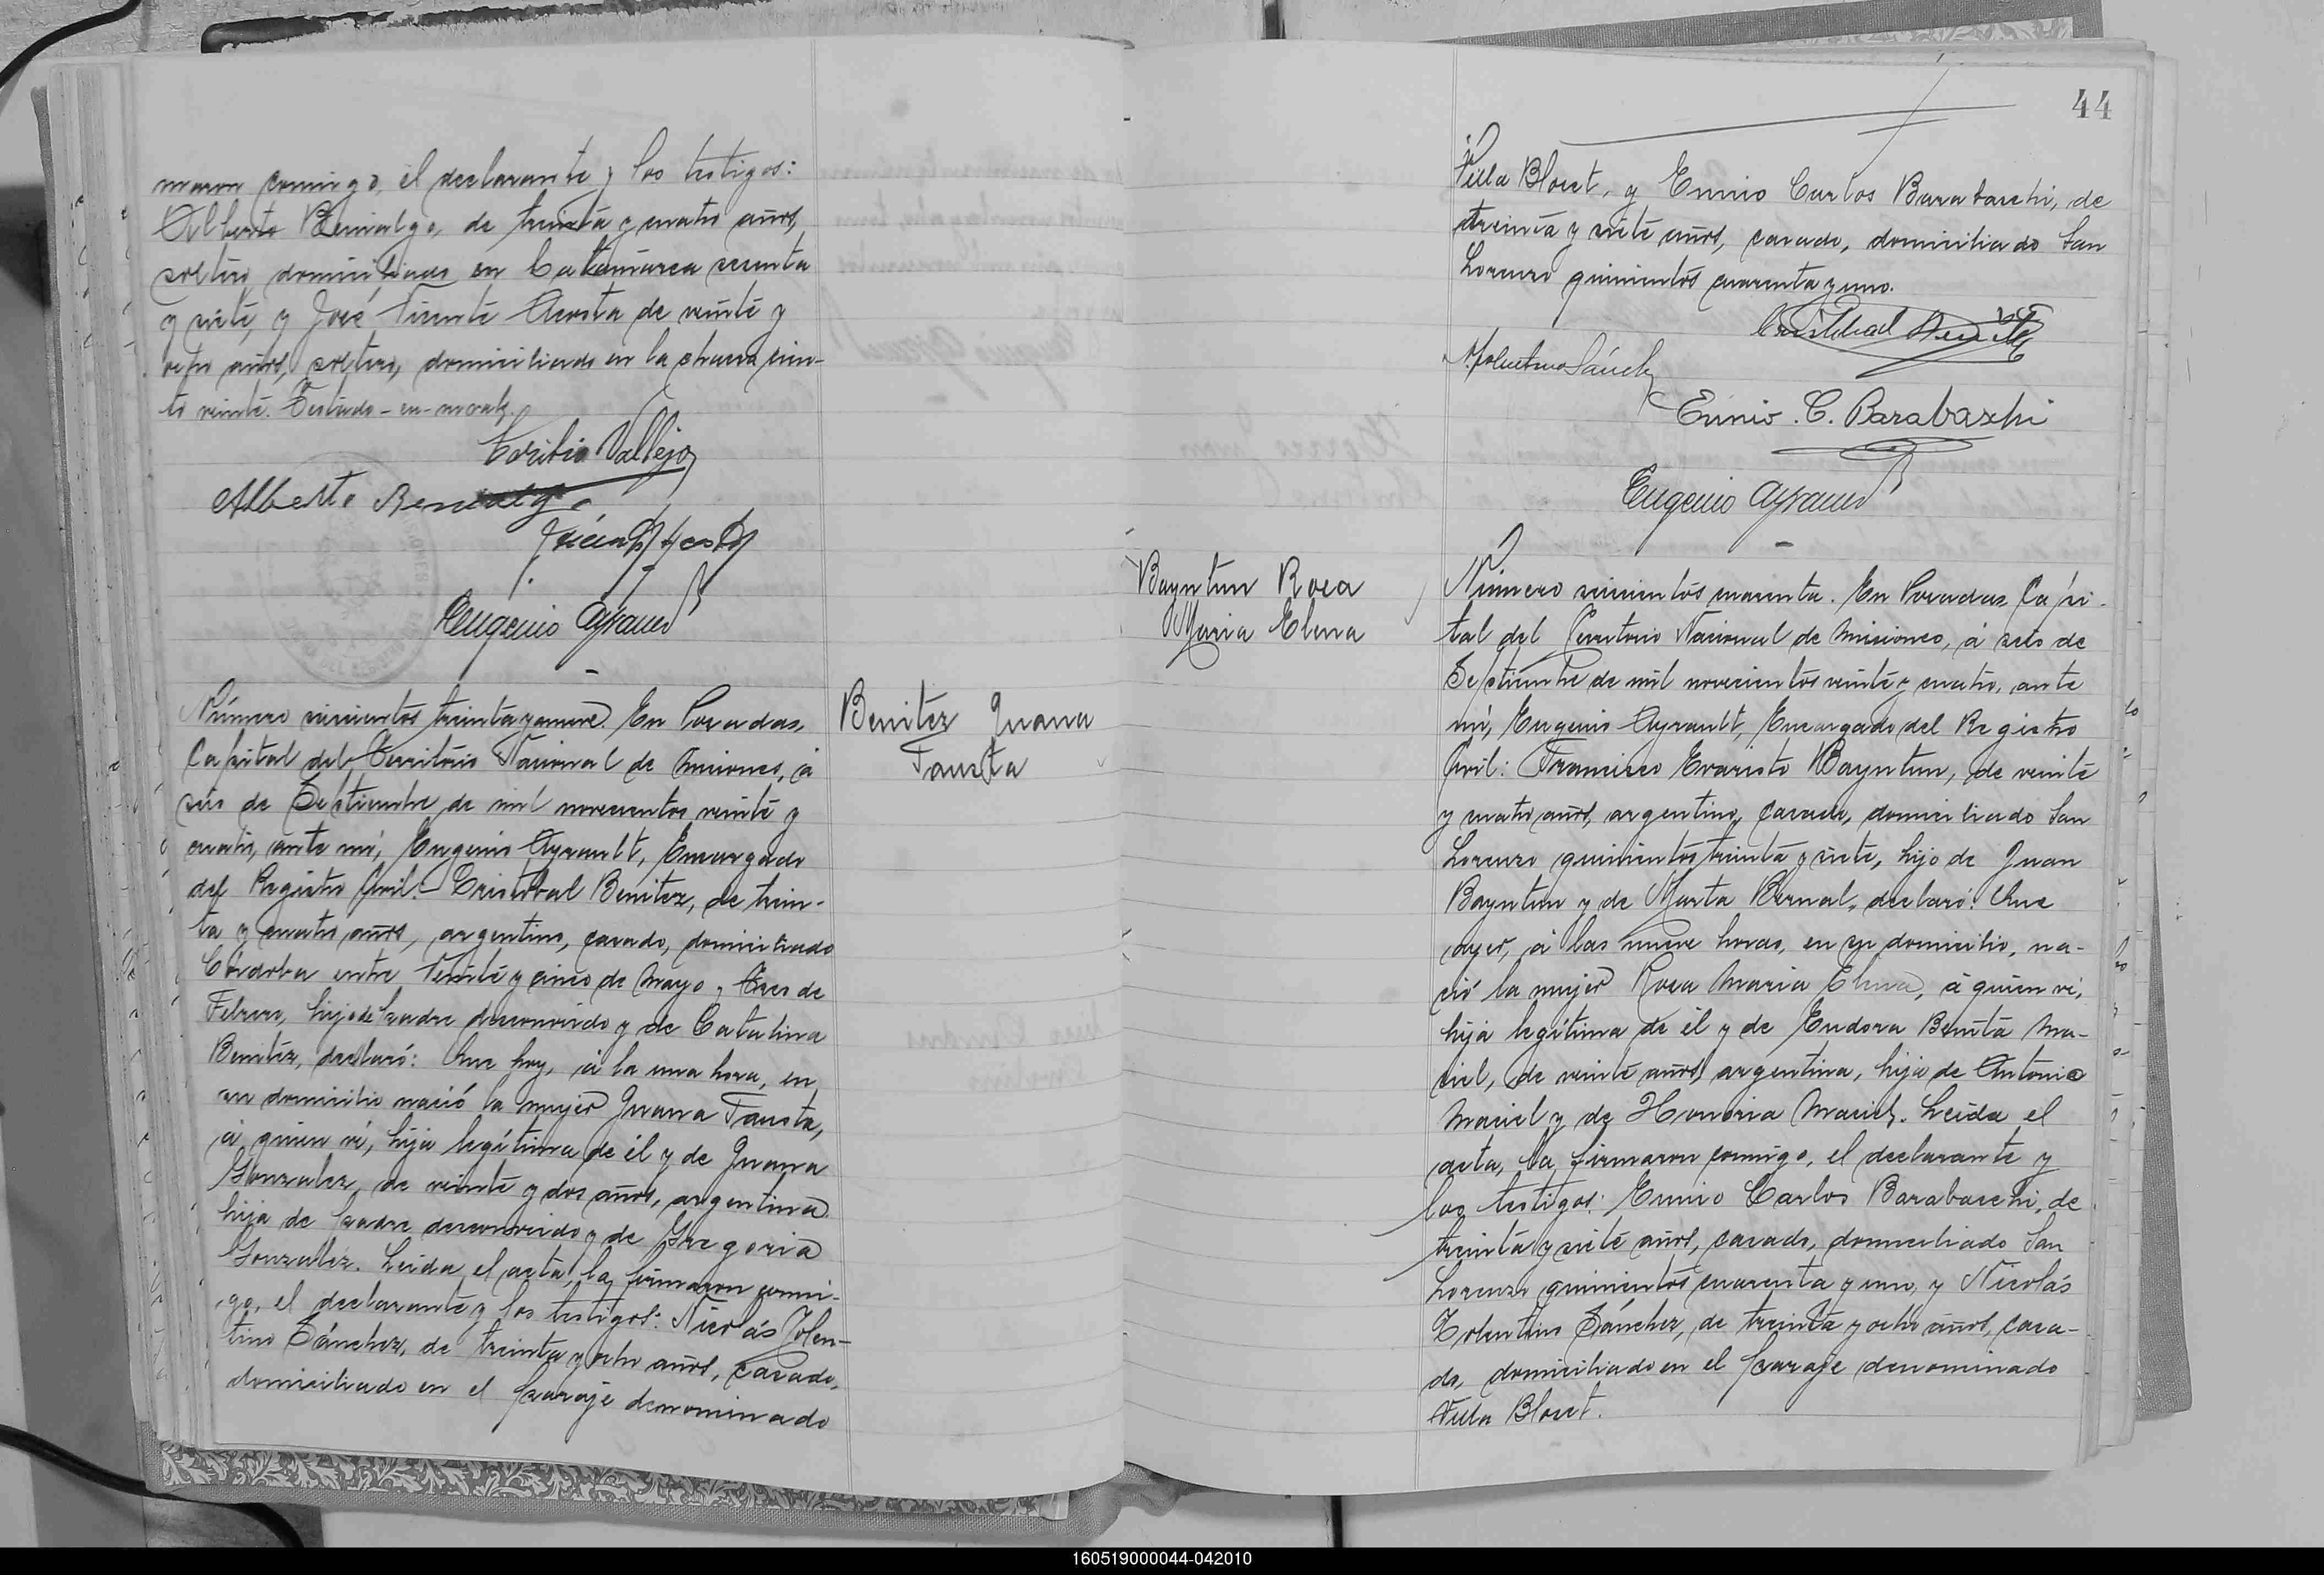 maron comigo, el declarante y los testigos:
Alberto Benialgo, de treinta y cuatro años,
soltero, domiciliado en Catamarca sesenta
y siete, y José Vicente Acosta de veinte y
ocho años, soltero, domiciliado en la chacra cien-
to veinte. Testado-en-
Toribio Vallejos
Alberto Benialgo
Eugenio Ayrault
Número seiscientos treinta y nueve. En Posadas,
Capital del Territorio Nacional de Misiones, á
seis de Septiembre de mil novecientos veinte y
cuatro, ante mí, Eugenio Ayrault, Encargado
del Registro Civil: Cristóbal Benitez, de trein-
ta y cuatro años, argentino, casado, domiciliado
Córdoba entre Veinte y cinco de Mayo y Tres de
Febrero, hijo de padre desconocido y de Catalina
Benitez, declaró: Que hoy, á la una hora, en
su domicilio nació la mujer Juana Fausta,
á quien ví, hija legítima de él y de Juana
Gonzalez, de veinte y dos años, argentina
hija de padre desconocido y de Gregoria
Gonzalez. Leida el acta, la firmaron comi-
go, el declarante y los testigos: Nicolás Tolen-
tino Sánchez, de treinta y ocho años, casado,
domiciliado en el paraje denominado
Benitez Juana
Fausta
44
Villa Blosset, y Ennio Carlos Barabaschi, de
treinta y siete años, casado, domiciliado San
Lorenzo quinientos cuarenta y uno.
Cristóbal Benitez
N. Tolentino Sánchez
Ennio. C. Barabaschi
Eugenio Ayrault
Bayntun Rosa
Maria Elena
Número seiscientos cuarenta. En Posadas Capi-
tal del Territorio Nacional de Misiones, á seis de
Septiembre de mil novecientos veinte y cuatro, ante
mí, Eugenio Ayrault, Encargado del Registro
Civil: Francisco Evaristo Bayntun, de veinte
y cuatro años, argentino, casado, domiciliado San
Lorenzo quinientos treinta y siete, hijo de Juan
Bayntun y de Marta Bernal, declaró: Que
ayer, á las nueve horas, en su domicilio, na-
ció la mujer Rosa Maria Elena, á quien ví,
hija legítima de él y de Eudora Benita Ma-
ciel, de veinte años, argentina, hija de Antonio
Maciel y de Honoria Maciel. Leida el
acta, la firmaron comigo, el declarante y
los testigos: Ennio Carlos Barabaschi, de
treinta y siete años, casado, domiciliado San
Lorenzo quinientos cuarenta y uno, y Nicolás
Tolentino Sánchez, de treinta y ocho años, casa-
do, domiciliado en el paraje denominado
Villa Blosset.
160519000044-042010